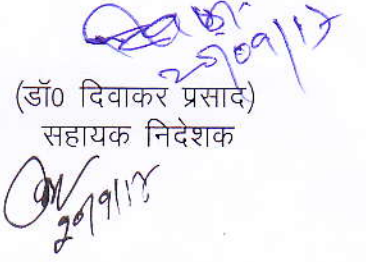 20/09/17
(डॉ0 दिवाकर प्रसाद)
सहायक निदेशक
20/9/17